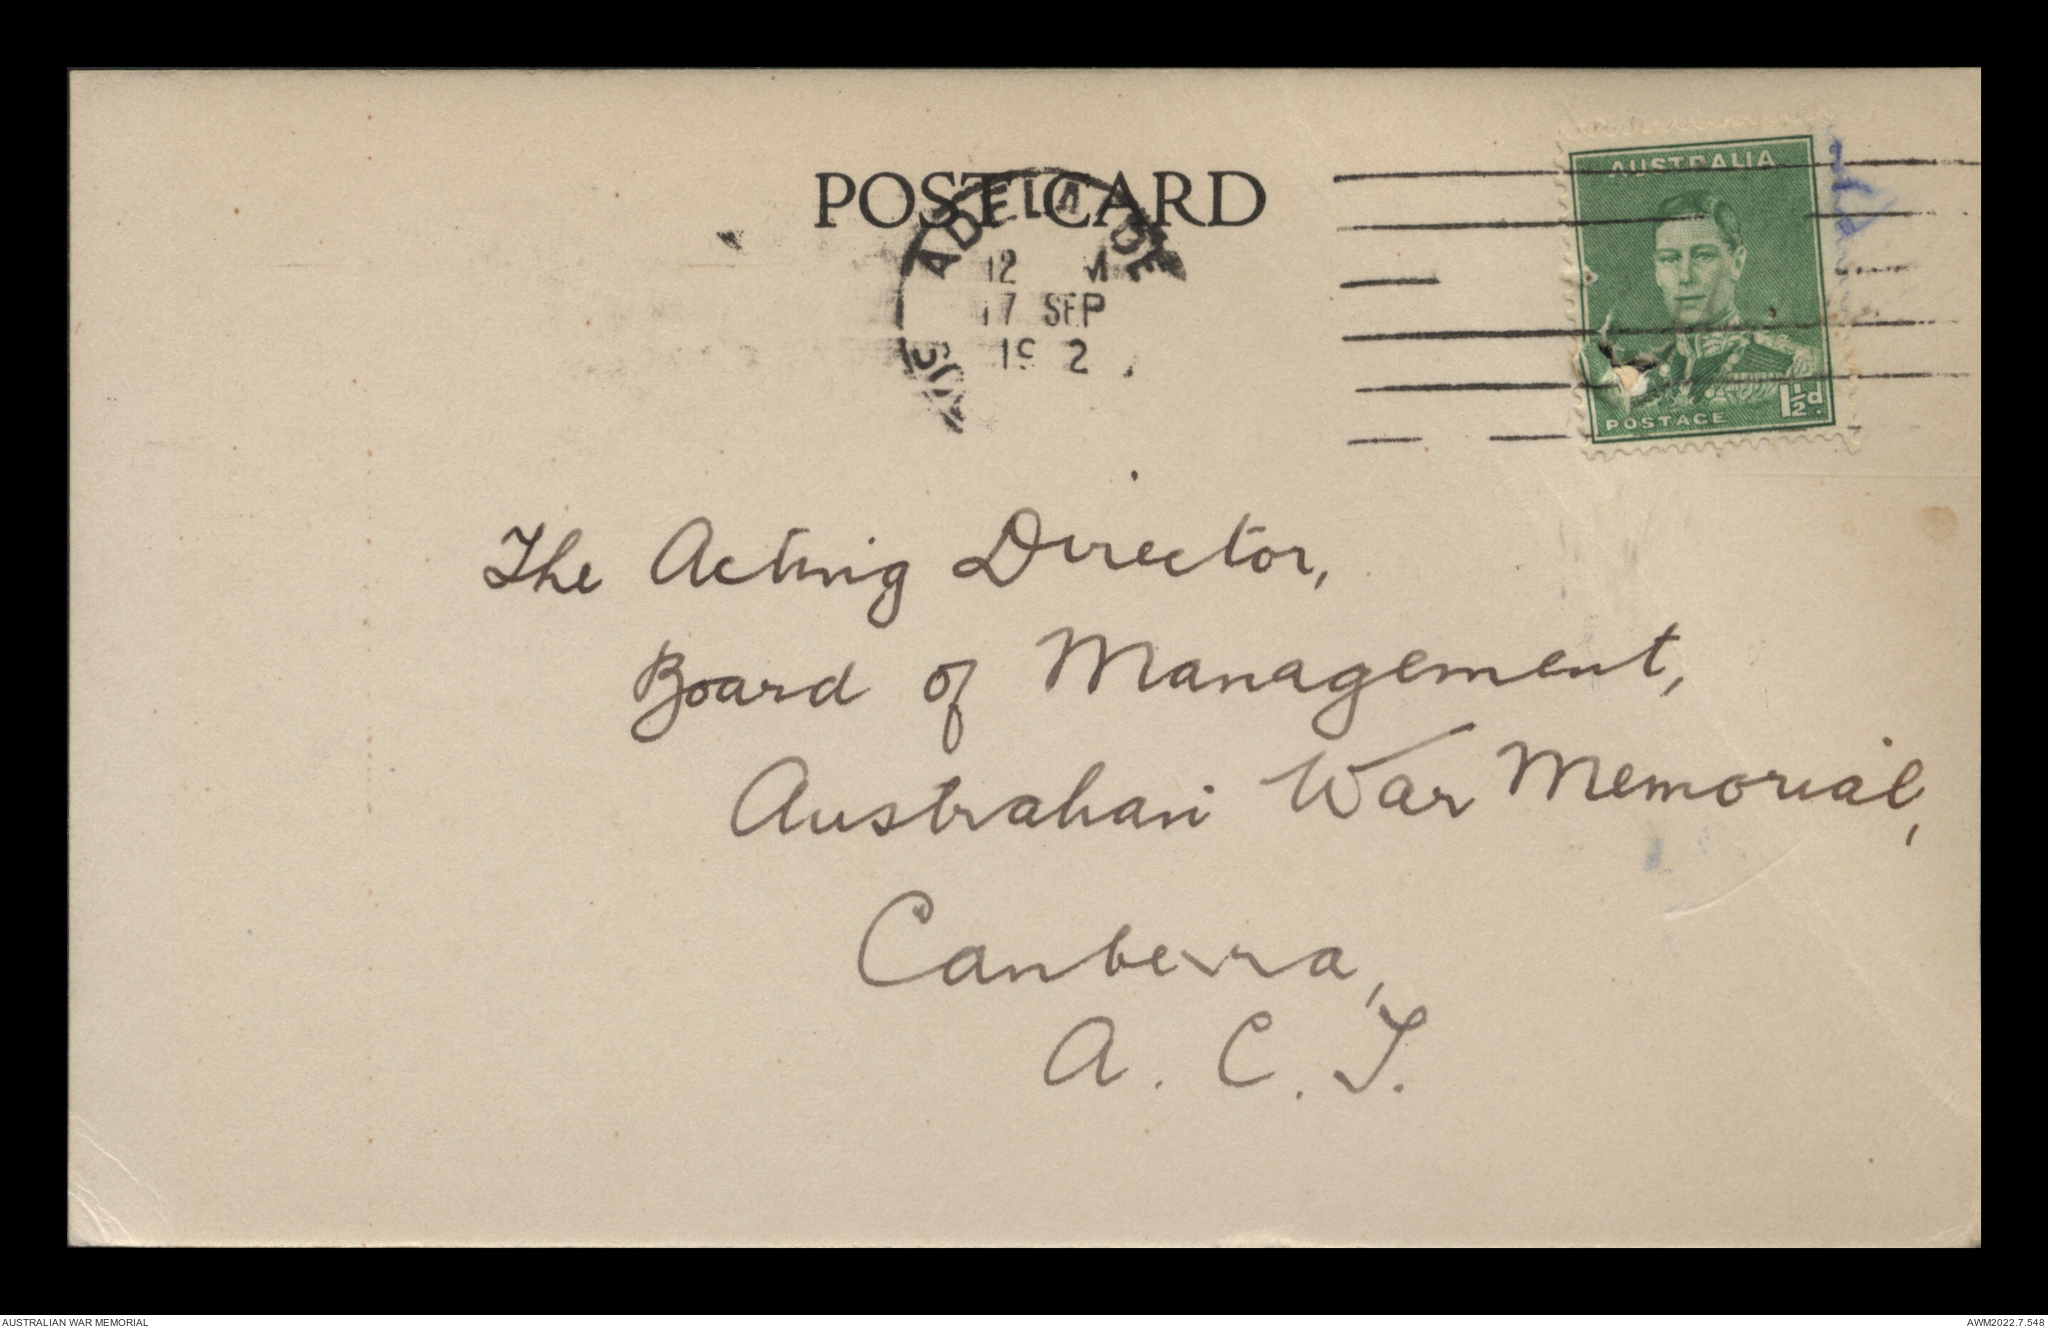 POST CARD
ADELAIDE
12 M
17 SEP
19 2
AUSTRALIA
POSTAGE
1½d.
The Acting Director,
Board of Management,
Australian War Memorial,
Canberra,
A. C. T.
AUSTRALIAN WAR MEMORIAL
AWM2022.7.548